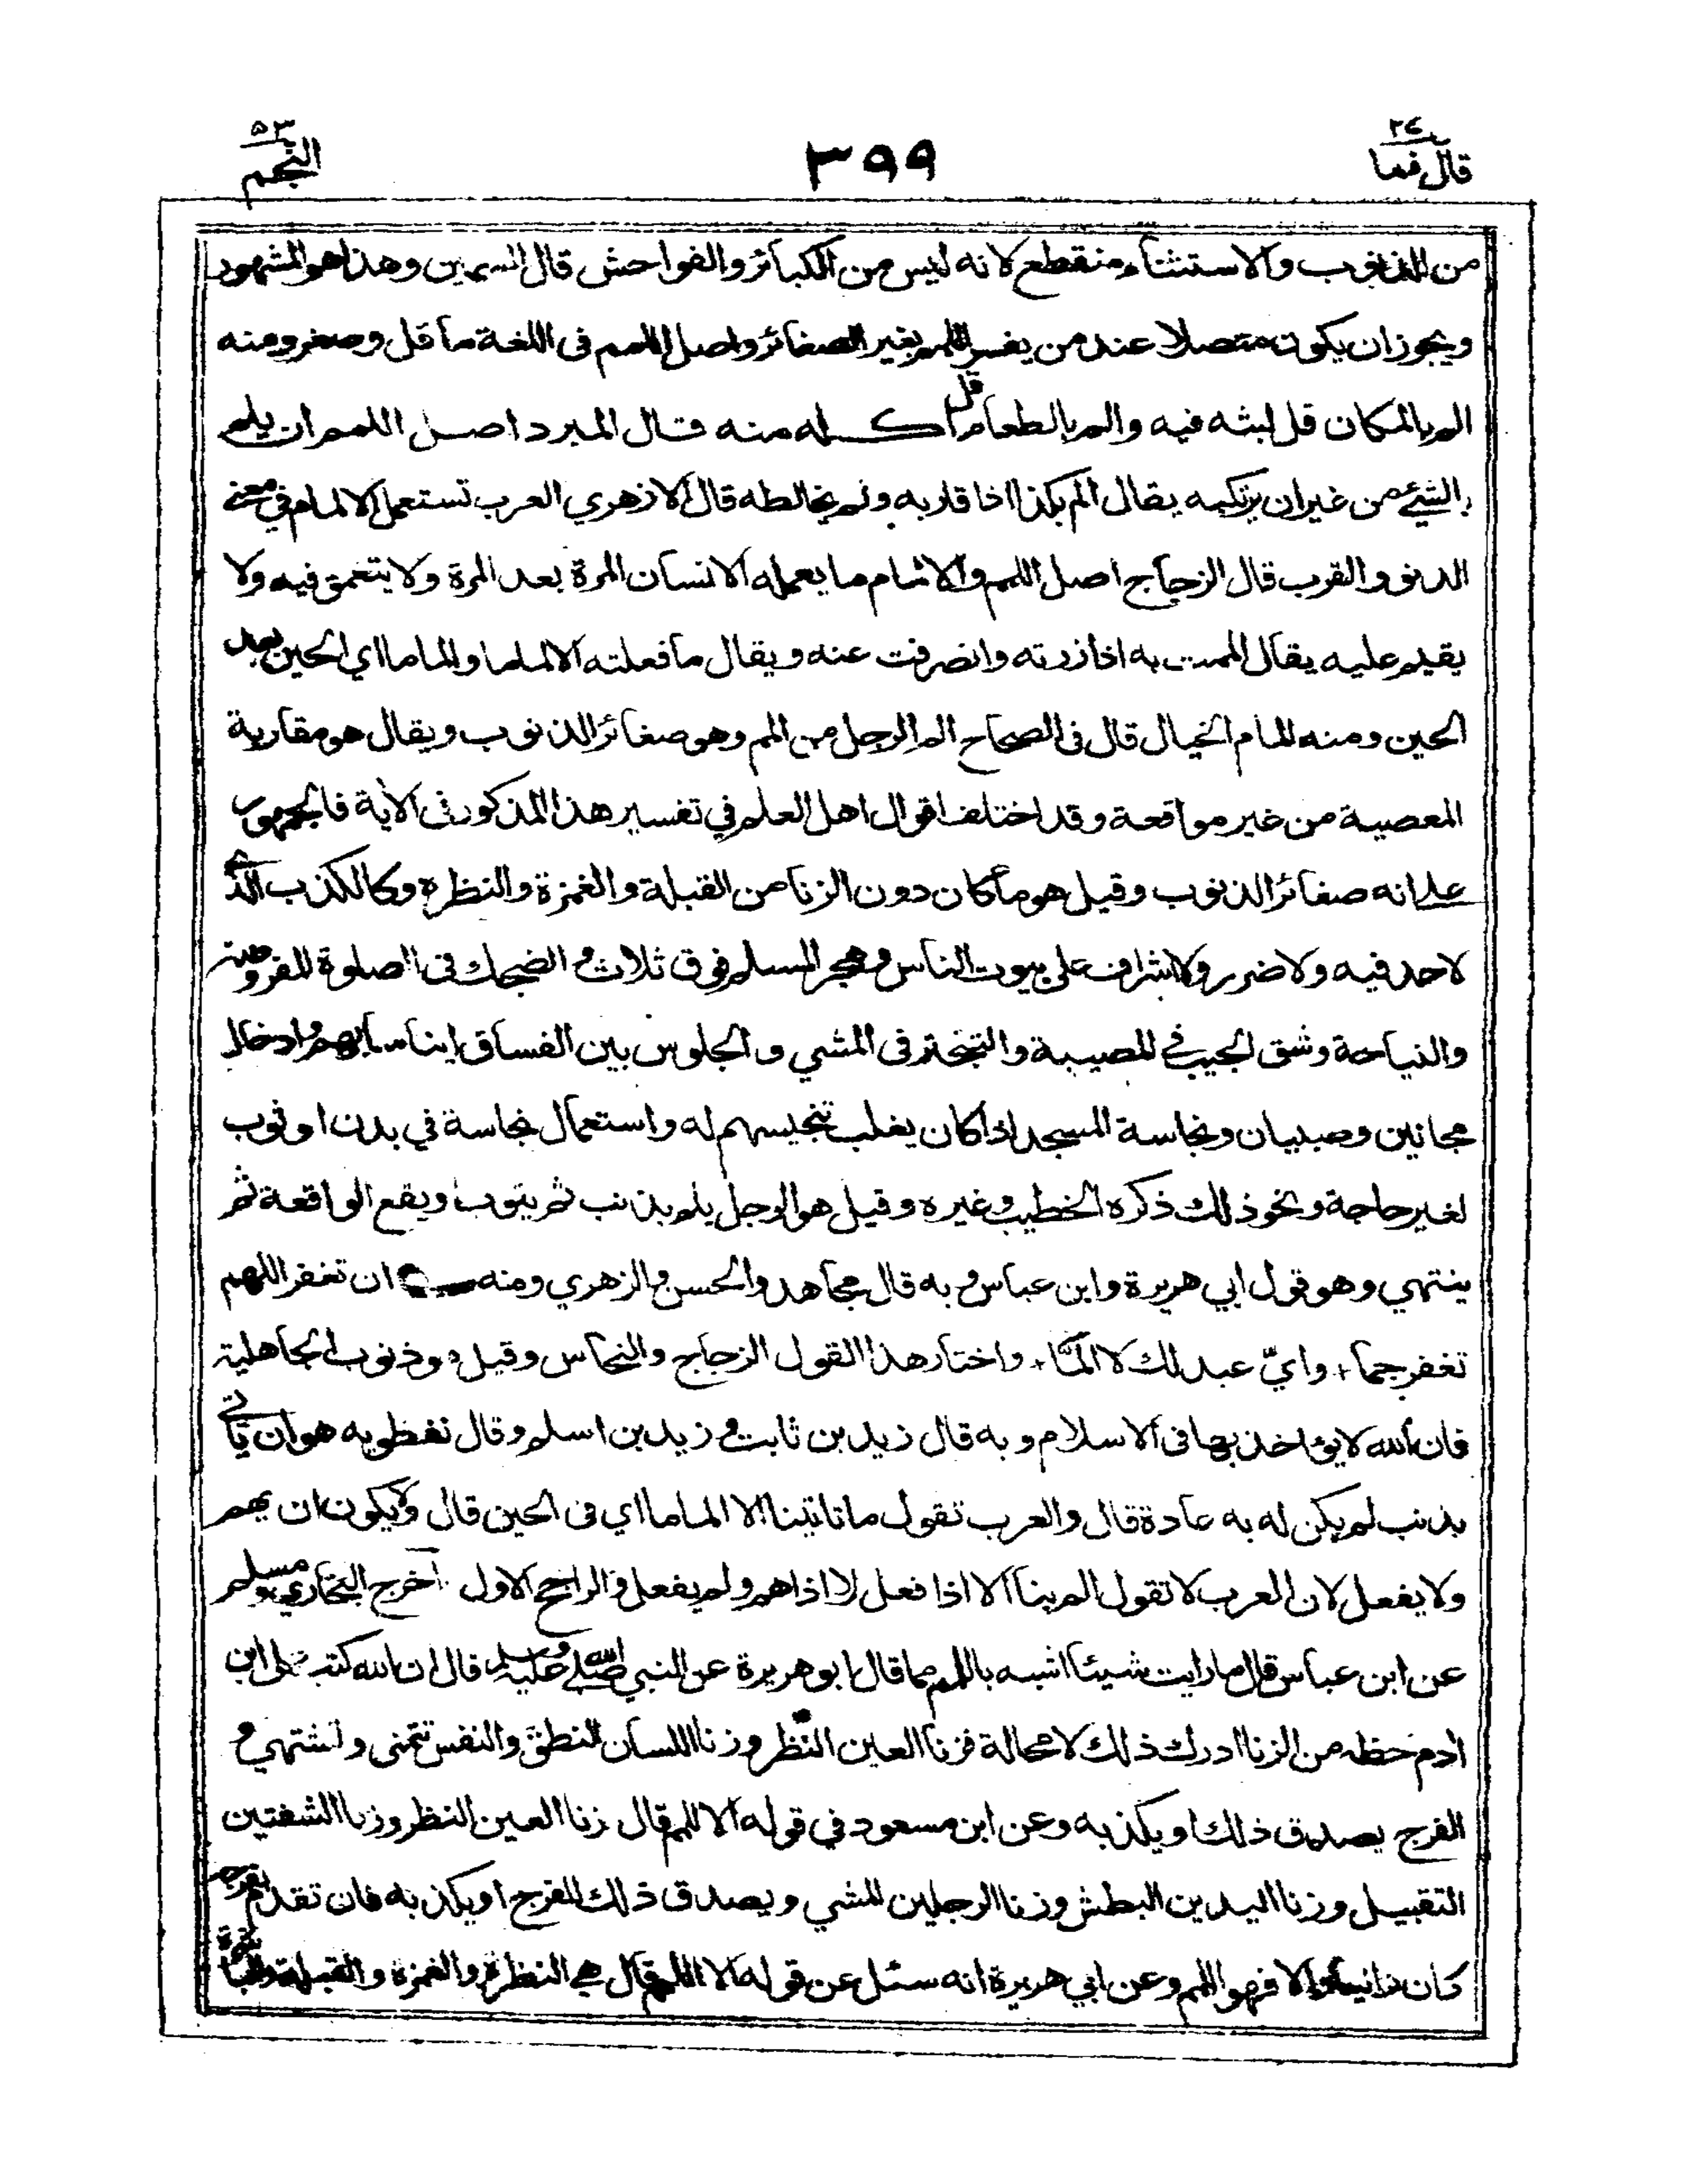 ٢٧
قال فما
٣٩٩
٥٣
النجم
من الذنوب والاستثناء منقطع لانه ليس من الكبائر والفواحش قال السمين وهذا هو المشهور
ويجوز ان يكون متصلا عند من يفسر اللمم بغير الصغائر واصل اللمم فى اللغة ما قل وصغر ومنه
الم بالمكان قل لبثه فيه والم بالطعام قل اكله منه قال المبرد اصل اللمم ان يلم
بالشيئ من غير ان يرتكبه يقال الم بكذا اذا قاربه ولم يخالطه قال الازهري العرب تستعمل الالمام في معنى
الدنو والقرب قال الزجاج اصل اللمم والالمام ما يعمله الانسان المرة بعد المرة ولا يتعمق فيه ولا
يقيم عليه يقال الممت به اذا زرته وانصرفت عنه ويقال ما فعلته الا لمما والماما اي الحين بعد
الحين ومنه المام الخيال قال فى الصحاح الم الرجل من اللمم وهو صغائر الذنوب ويقال هو مقاربة
المعصية من غير مواقعة وقد اختلف اقوال اهل العلم في تفسير هذا المذكور فى الأية فالجمهور
على انه صغائر الذنوب وقيل هو ما كان دون الزنا من القبلة والغمزة والنظرة وكالكذب الذي
لاحد فيه ولا ضرر والاشراف على بيوت الناس وهجر المسلم فوق ثلاث والضحك فى الصلوة المفروضة
والنياحة وشق الجيب في المصيبة والتبختر فى المشي والجلوس بين الفساق ايناسا بهم وادخال
مجانين وصبيان ونجاسة المسجد اذا كان يغلب تنجيسهم له واستعمال نجاسة في بدن او ثوب
لغير حاجة ونحو ذلك ذكره الخطيب وغيره وقيل هو الرجل يلم بذنب ثم يتوب ويقع الواقعة ثم
ينتهي وهو قول ابي هريرة وابن عباس وبه قال مجاهد والحسن والزهري ومنه ان تغفر اللهم
تغفر جما + واي عبد لك لا المّا + واختار هذا القول الزجاج والنحاس وقيل هو ذنوب الجاهلية
فان الله لا يؤاخذ بها فى الاسلام وبه قال زيد بن ثابت وزيد بن اسلم وقال نفطويه هو ان ياتي
بذنب لم يكن له به عادة قال والعرب تقول ما تاتينا الا الماما اي فى الحين قال ولا يكون ان يهم
ولا يفعل لان العرب لا تقول الم بنا الا اذا فعل لا اذا هم ولم يفعل والراجح الاول اخرج البخاري ومسلم
عن ابن عباس قال ما رايت شيئا اشبه باللمم مما قال ابو هريرة عن النبي صلى الله عليه وسلم قال ان الله كتب على ابن
ادم حظه من الزنا ادرك ذلك لا محالة فزنا العين النظر وزنا اللسان النطق والنفس تتمنى وتشتهي و
الفرج يصدق ذلك او يكذبه وعن ابن مسعود في قوله الا اللمم قال زنا العين النظر وزنا الشفتين
التقبيل وزنا اليدين البطش وزنا الرجلين المشي ويصدق ذلك الفرج او يكذبه فان تقدم بفرجه
كان زانيا والا فهو اللمم وعن ابي هريرة انه سئل عن قوله الا اللمم قال هي النظرة والغمزة والقبلة والمباشرة